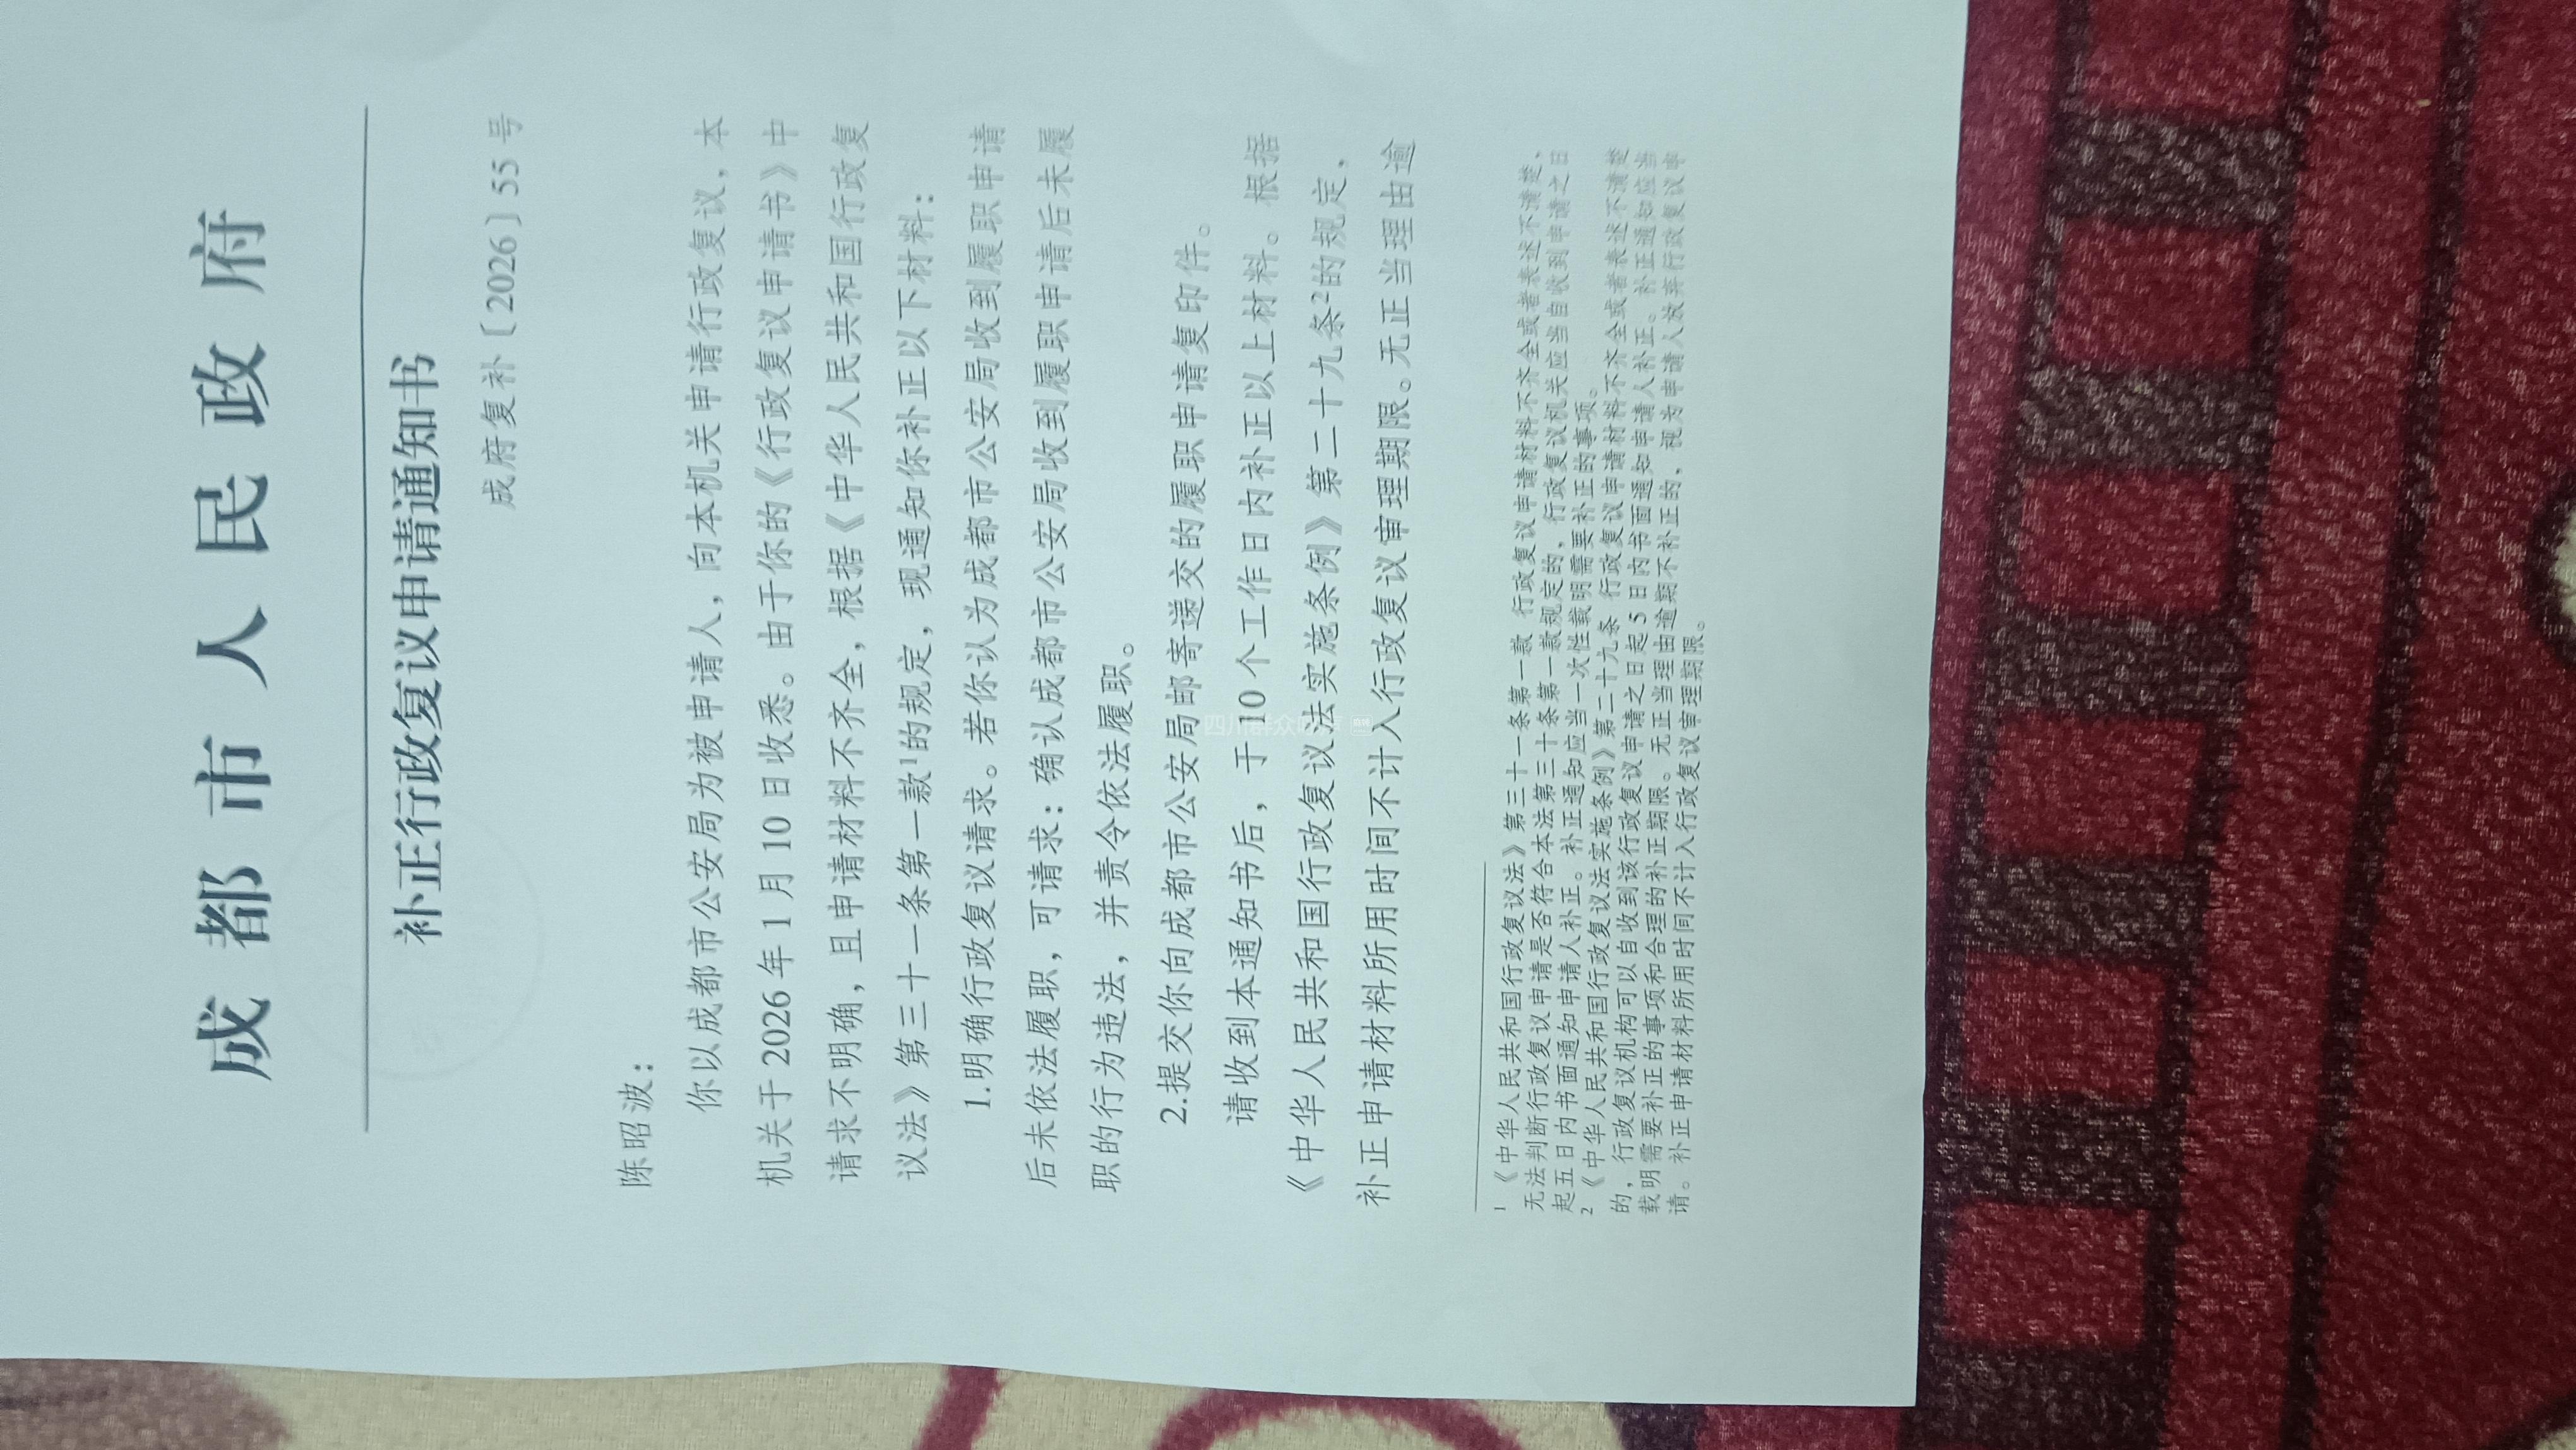 成都市人民政府
补正行政复议申请通知书
成府复补〔2026〕55号
陈昭波：
你以成都市公安局为被申请人，向本机关申请行政复议，本
机关于2026年1月10日收悉。由于你的《行政复议申请书》中
请求不明确，且申请材料不齐全，根据《中华人民共和国行政复
议法》第三十一条第一款1的规定，现通知你补正以下材料：
1.明确行政复议请求。若你认为成都市公安局收到履职申请
后未依法履职，可请求：确认成都市公安局收到履职申请后未履
职的行为违法，并责令依法履职。
2.提交你向成都市公安局邮寄递交的履职申请复印件。
请收到本通知书后，于10个工作日内补正以上材料。根据
《中华人民共和国行政复议法实施条例》第二十九条2的规定，
补正申请材料所用时间不计入行政复议审理期限。无正当理由逾
1《中华人民共和国行政复议法》第三十一条第一款 行政复议申请材料不齐全或者表述不清楚，
无法判断行政复议申请是否符合本法第三十条第一款规定的，行政复议机关应当自收到申请之日
起五日内书面通知申请人补正。补正通知应当一次性载明需要补正的事项。
2《中华人民共和国行政复议法实施条例》第二十九条 行政复议申请材料不齐全或者表述不清楚
的，行政复议机构可以自收到该行政复议申请之日起5日内书面通知申请人补正。补正通知应当
载明需要补正的事项和合理的补正期限。无正当理由逾期不补正的，视为申请人放弃行政复议申
请。补正申请材料所用时间不计入行政复议审理期限。